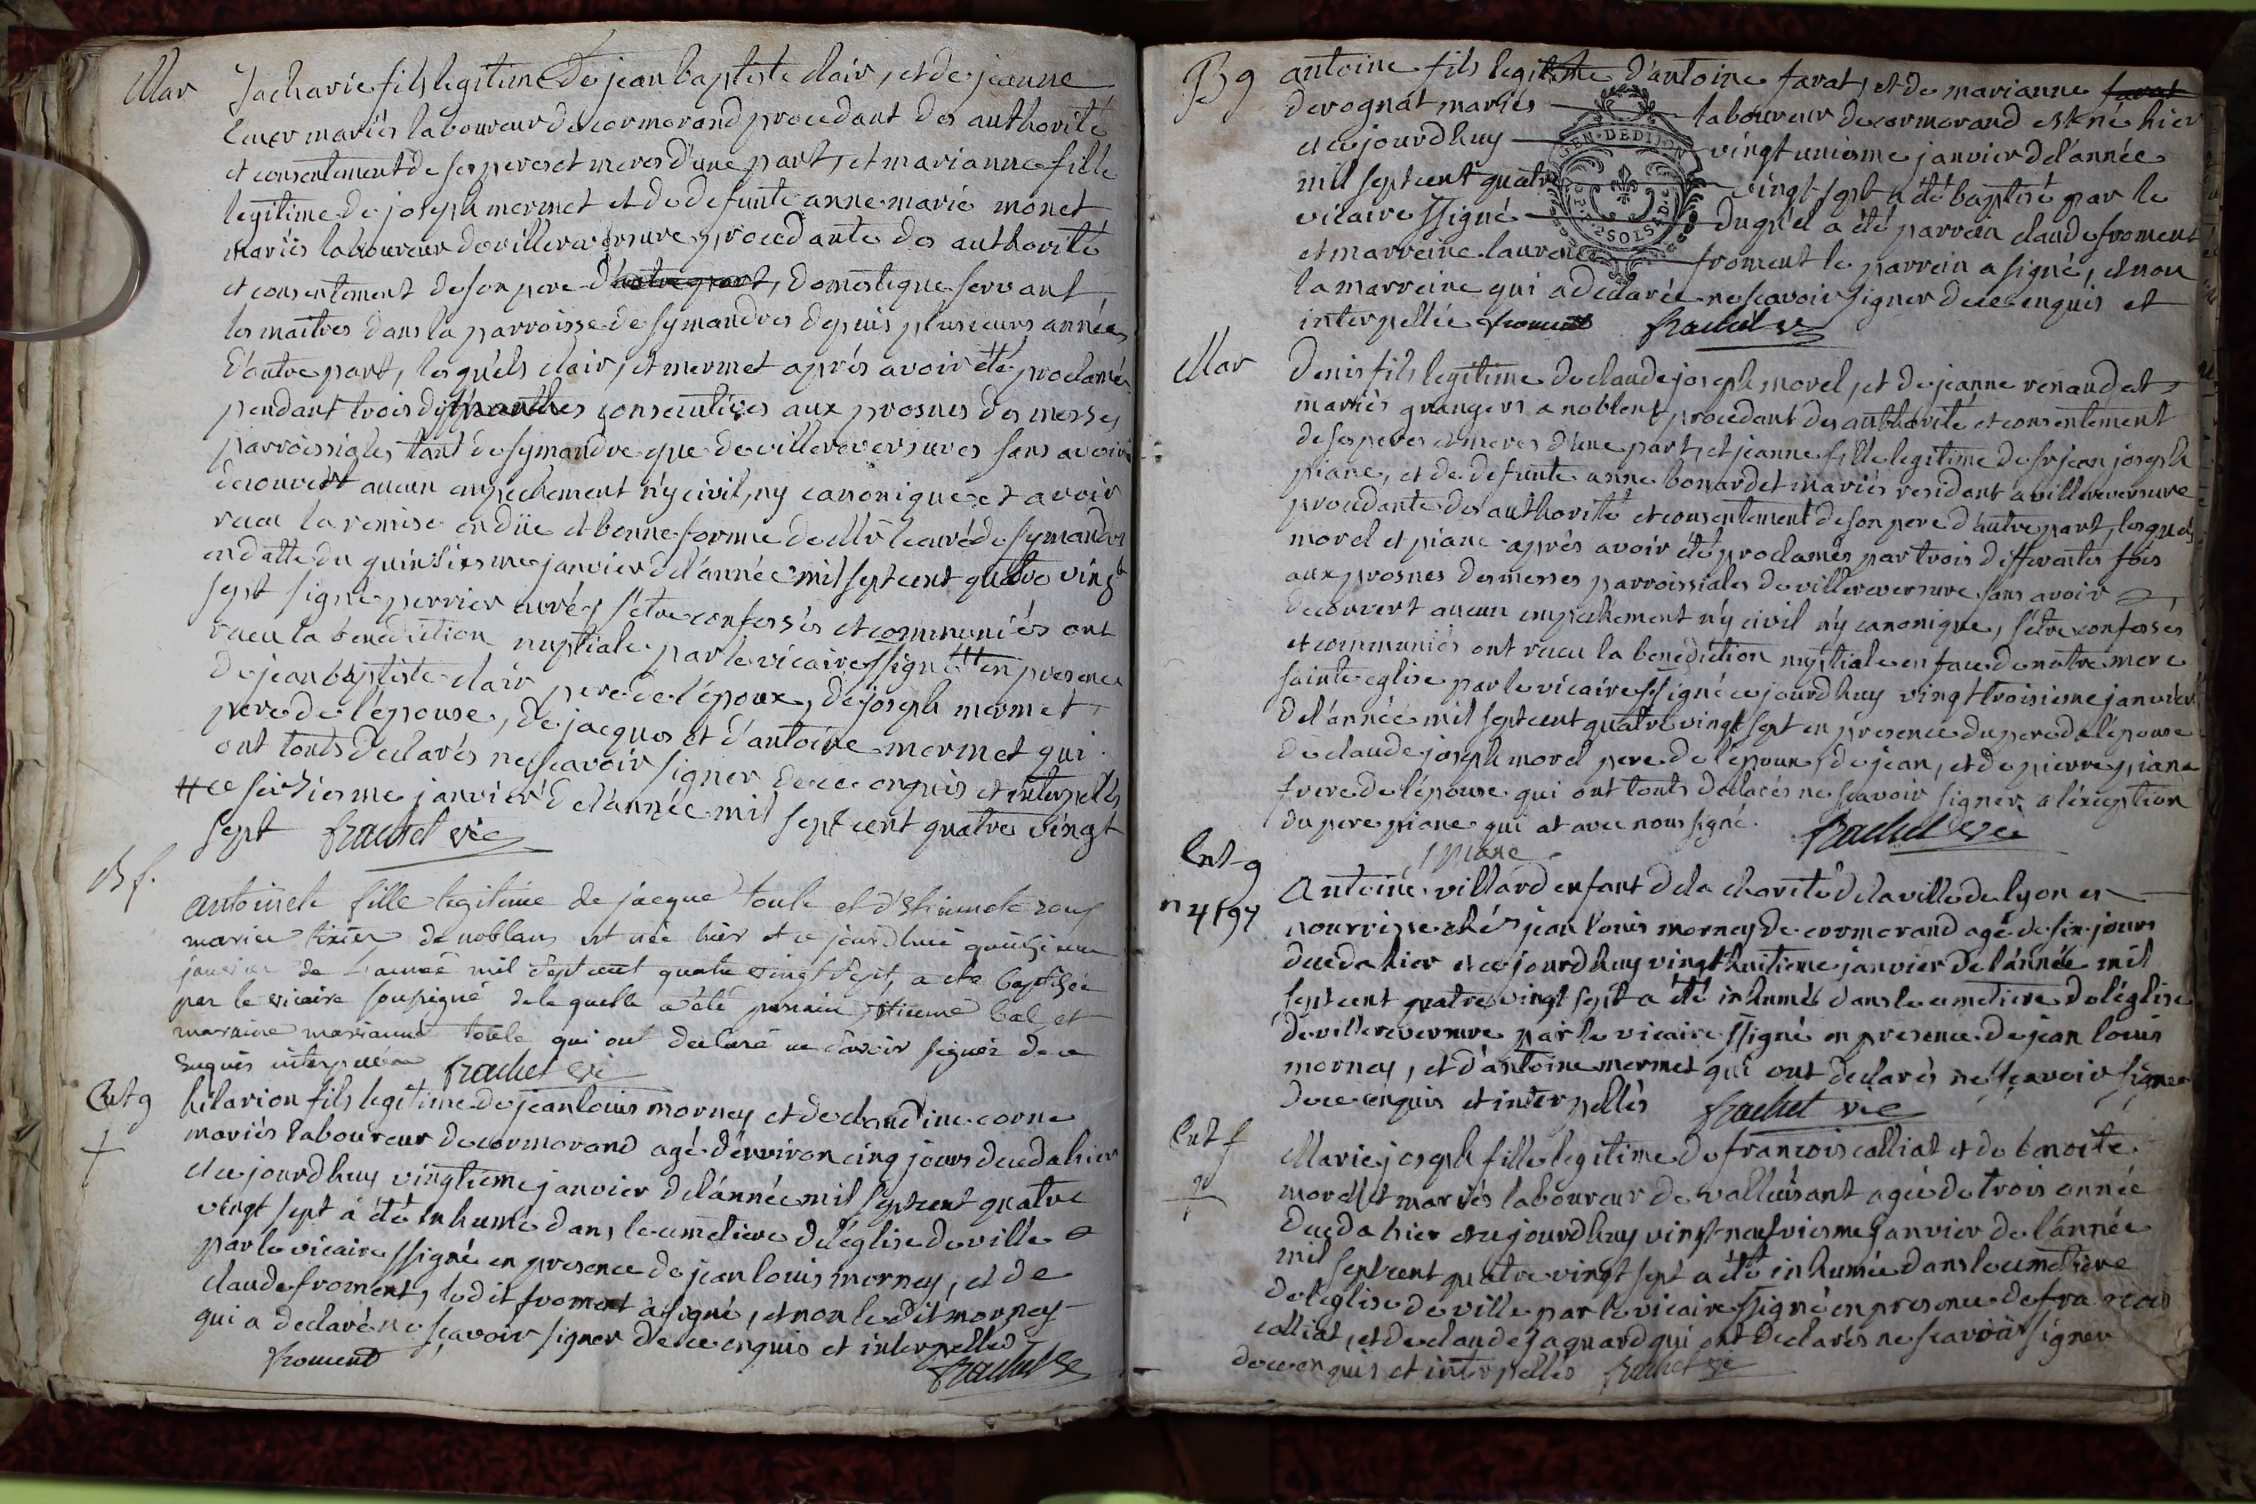 Mar
Zacharie fils legitime de jean baptiste clair, et de jeanne
mariés laboureur de cormorand procedant des authorité
et consentement de ses peres et meres d'une part, et marianne fille
legitime de joseph mermet et de defunte anne marie monet
mariés laboureur de villereversure, procedante des authorité
et consentement de son pere d'autre part, domestique servant
les maitres dans la parroisse de symandres depuis plusieurs années
d'autre part, lesquéls clair, et mermet aprés avoir été proclamé
pendant trois dimanches consecutives aux prosnes des messes
parroissiales tant de symandre que de villereversures sans avoir
decouvert aucun empechement n'y civil, ny canonique et avoir
recu la remise en düe et bonne forme de Mr le curé de symandre
en datte du quinsiesme janvier de l'année mil sept cent quatre vingt
sept signé perrier curé, s'etre confessés et communiés ont
recu la benediction nuptiale par le vicaire ssigné # en presence
de jean baptiste clair pere de l'époux, de joseph mermet
pere de l'épouse, de jacques et d'antoine mermet qui
ont touts declarés ne scavoir signer de ce enquis et interpellés
# ce seisiesme janvier de l'année mil sept cent quatre vingt
sept frachet vic
B f.
antoinete fille legitime de jacque toule et d'Etiennete
mariés de noblans est née hier et ce jourdhué quinsieme
janvier de l'année mil sept cent quatre vingt sept, a eté baptisée
par le vicaire soussigné de la quelle a été parrain Etienne bal et
maraine marianne toule qui ont declaré ne savoir signer de ce
enquis interpellés frachet vic
Ent g
hilarion fils legitime de jean louis morney et de claudine corne
mariés laboureur de cormorand agé d'environ cinq jours decedé hier
et ce jourdhuy vingtieme janvier de l'année mil sept cent quatre
vingt sept a été inhumé dans le cimetiere de l'église de ville
par le vicaire ssigné en presence de jean louis morney, et de
claude froment, le dit froment a signé, et non le dit morney
qui a declaré ne scavoir signer de ce enquis et interpellé
froment frachet vic
B g
antoine fils legitime d'antoine favat, et de marianne favat
derognat mariés laboureur de cormorand est né hier
et ce jourdhuy vingt uniesme janvier de l'année
mil sept cent quatre vingt sept a été baptisé par le
vicaire ssigné duquél a été parrain claude froment
et marreine laurence froment le parrein a signé, et non
la marreine qui a declarée ne scavoir signer de ce enquis et
interpellée froment frachet vic
GEN·DEDIJON
Mar
Denis fils legitime de claude joseph morel, et de jeanne renaud et
mariés grangers a noblent procedant des authorité, et consentement
de ses peres et meres d'une part, et jeanne fille legitime de sr jean joseph
piane, et de defunte anne bonardet mariés residant a villereversure
procedante des authorité et consentement de son pere d'autre part, lesquels
morel et piane aprés avoir été proclamés par trois differentes fois
aux prosnes des messes parroissiales de villereversure sans avoir
decouvert aucun empechement n'y civil n'y canonique, s'etre confessés
et communiés ont recu la benediction nuptiale en face de notre mere
sainte eglise par le vicaire ssigné ce jourdhuy vingt troisieme janvier
de l'année mil sept cent quatre vingt sept en présence du pere de l'épouse
de claude joseph morel pere de l'époux, de jean, et de pierre piane
frere de l'épouse qui ont touts declarés ne scavoir signer, a l'exception
du pere piane qui at avec nous signé. frachet vic
J piane
Ent g
n 4597
Antoine villard enfant de la charité de la ville de lyon en
nourrisse chés jean louis morney de cormorand agé de six jours
decedé hier et ce jourdhuy vingt huitieme janvier de l'année mil
sept cent quatre vingt sept a été inhumé dans le cimetiere de l'église
de villereversure par le vicaire ssigné en presence de jean louis
morney, et d'antoine mermet qui ont declarés ne scavoir signer
de ce enquis et interpellés frachet vic
Ent f
Marie joseph fille legitime de francois calliat et de benoite
morellet mariés laboureur de agée de trois année
decedé hier et ce jourdhuy vingt neufviesme janvier de l'année
mil sept cent quatre vingt sept a été inhumée dans le cimetiere
de l'église de ville par le vicaire ssigné en presence de francois
calliat, et de claude jaquard qui ont declarés ne scavoir signer
de ce enquis et interpellés frachet vic